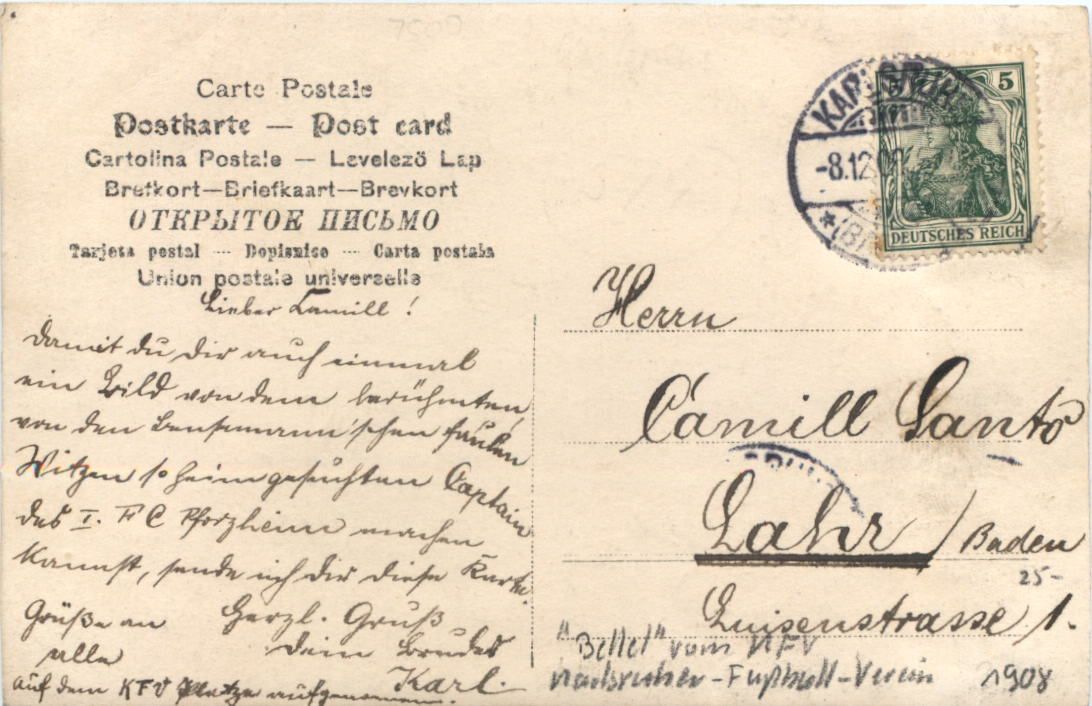 Carte Postale
Postkarte — Post card
Cartolina Postale — Levelező Lap
Brefkort—Briefkaart—Brevkort
ОТКРЫТОЕ ПИСЬМО
Tarjeta postal — Dopisnice — Carta postala
Union postale universelle
Lieber Camill!
Damit du dir auch einmal
ein Bild von dem berühmten,
von den Bensemann'schen faulen
Witzen so heimgesuchten Captain
des I. F C Pforzheim machen
kannst, sende ich dir diese Karte.
Grüße an
alle
Herzl. Gruß
Dein Bruder
Karl.
auf dem KFV Platze aufgenommen.
KARLSRUHE
-8.12.
5
DEUTSCHES REICH
Herrn
Camill Santo
Lahr / Baden
25-
Luisenstrasse 1.
vom KFV
Karlsruher-Fußball-Verein 1908